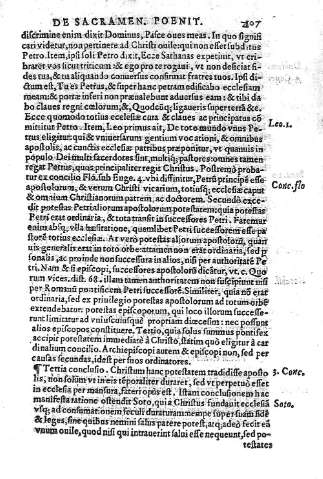 DE SACRAMEN. POENIT. 207
discrimine enim dixit Dominus, Pasce oues meas. In quo signifi
cari videtur, non pertinere ad Christi ouile: qui non esset subditus
Petro. Item, ipsi soli Petro dixit, Ecce Sathanas expetiuit, vt cri
braret vos sicut triticum: & ego pro te rogaui, vt non deficiat fi-
des tua, & tu aliquando conuersus confirma fratres tuos. Ipsi di-
ctum est, Tu es Petrus, & super hanc petram ædificabo ecclesiam
meam: & portæ inferi non præualebunt aduersus eam: & tibi da
bo claues regni cœlorum, &, Quodcũq; ligaueris super terrã &c.
Ecce quomodo totius ecclesiæ cura & claues ac principatus cõ
mittitur Petro. Item, Leo primus ait, De toto mundo vnus Pe-
trus eligitur qui & vniuersarum gentium vocationi, & omnibus
apostolis, ac cunctis ecclesiæ patribus præponitur, vt quamuis in
populo Dei multi sacerdotes sint, multiq; pastores: omnes tamen
regat Petrus, quos principaliter regit Christus. Postremò proba-
tur ex concilio Flo. sub Euge. 4. vbi diffinitur, Petrũ principẽ esse
apostolorũ, & verum Christi vicarium, totiusq; ecclesiæ caput
& omnium Christianorum patrem, ac doctorem. Secundò exce-
dit potestas Petri aliorum apostolorum potestatem: quia potestas
Petri erat ordinaria, & tota transit in successores Petri. Fatemur
enim absq; vlla hæsitatione, quemlibet Petri successorem esse pa
storẽ totius ecclesiæ. At verò potestas aliorum apostolorũ, quam
uis generalis erat in toto orbe: attamen non erat ordinaria, sed p
sonalis, ac proinde non successura in alios, nisi per authoritatẽ Pe
tri. Nam & si episcopi, successores apostolorũ dicãtur, vt c. Quo
rum vices. dist. 68. illam tamen authoritatem non suscipiunt nisi
per Romanũ pontificem Petri successorẽ. Similiter, quia nõ erat
ordinaria, sed ex priuilegio potestas apostolorum ad totum orbẽ
extendebatur: potestas episcoporum, qui loco illorum successe-
runt limitatur ad vniuscuiusq; propriam diœcesim: nec possunt
alios episcopos constituere. Tertiò, quia solus summus pontifex
accipit potestatem immediatè à Christo, statim quò eligitur à car
dinalium concilio. Archiepiscopi autem & episcopi non, sed per
causas secundas, idest per suos ordinatores.
¶ Tertia conclusio. Christum hanc potestatem tradidisse aposto
lis, non solùm vt in eis tẽporaliter duraret, sed vt perpetuò esset
in ecclesia per mansura, fateri opòs est. Istam conclusionem hac
manifesta ratione ostendit Soto, quia Christus fundauit ecclesiã
vsq; ad consummationem seculi duraturam: semper super suam fidẽ
& leges, sine quibus nemini salus patere potest, atq; adeò fecit eã
vnum ouile, quod nisi qui intrauerint salui esse nequeunt, sed po-
testates
Leo. 1.
Conc. flo
3. Conc.
Soto.